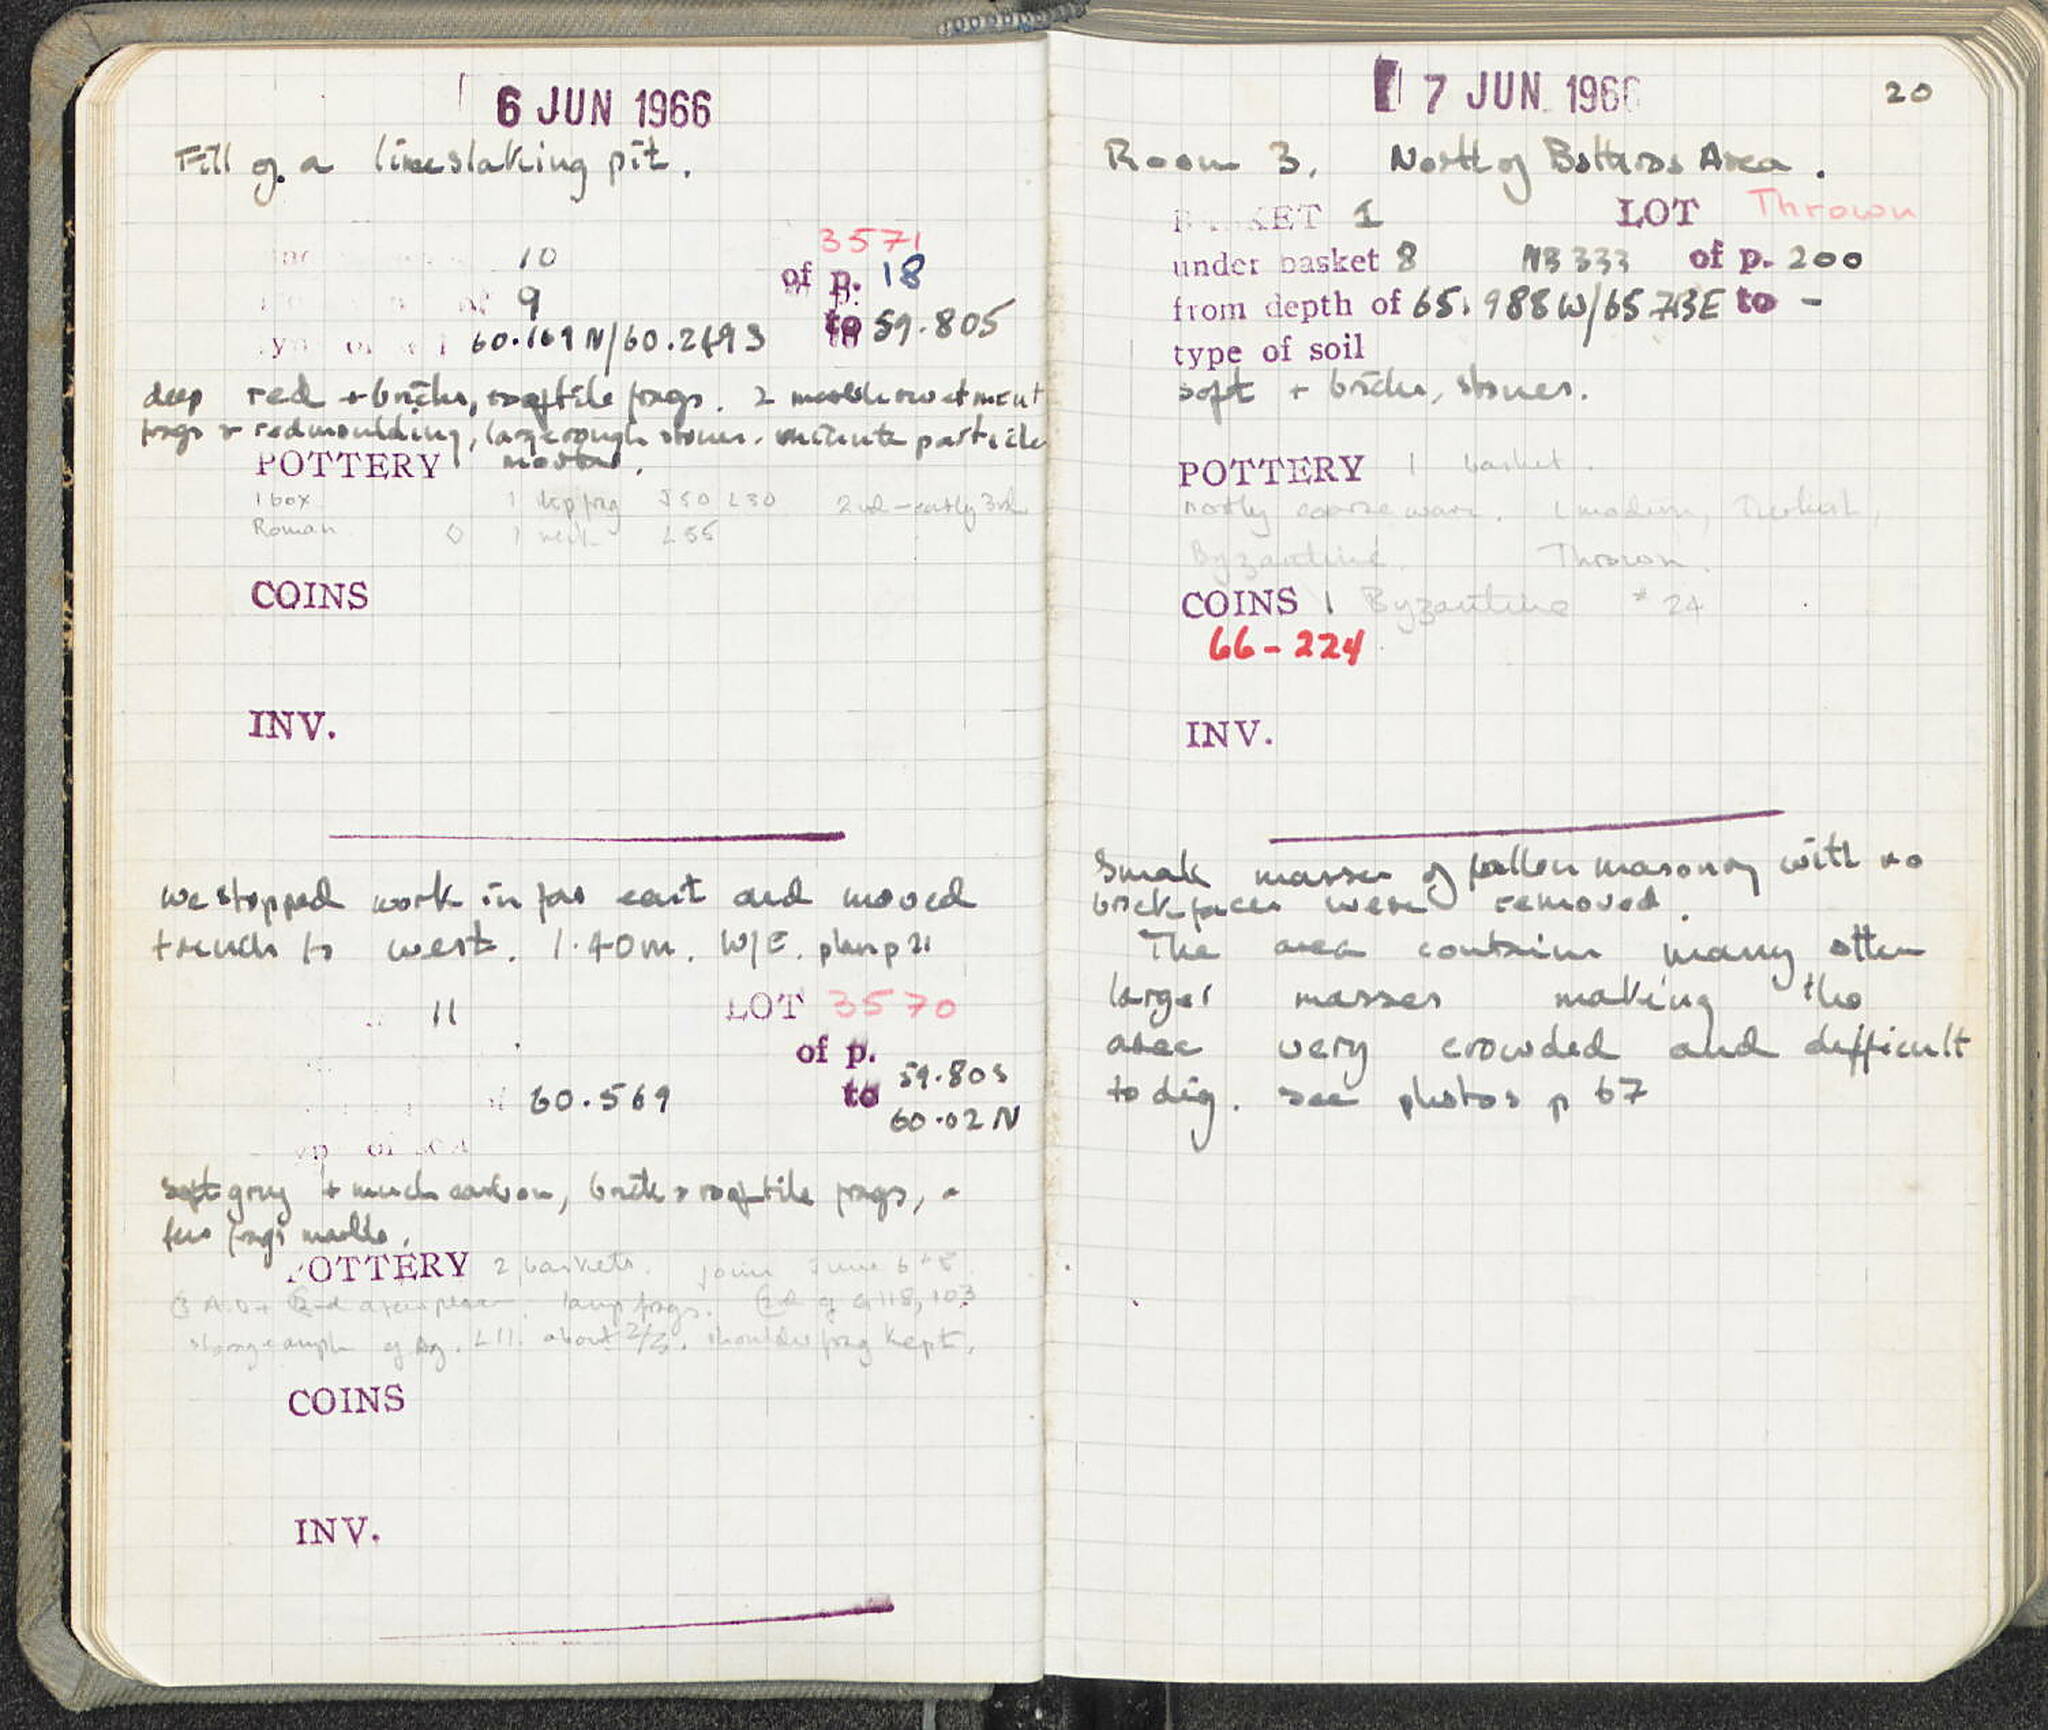 6 JUN 1966
Fill of a limeslaking pit.
10
3571
9
of p. 18
60.169N/60.249S to 59.805
deep red + bricks, rooftile frags. 2 marble revetment
frags + red moulding, large rough stones. minute particles
POTTERY mortar.
1 box 1 lamp frag J50 L30 2nd-early 3rd
Roman 1 L55
COINS
INV.
We stopped work in far east and moved
trench to west. 1.40m. W/E. plan p 21
11 LOT 3570
of p.
60.569 to 59.80S
60.02N
type of soil
soft grey + much carbon, brick + rooftile frags, a
few frags marble.
POTTERY 2 baskets. join June 6+8
lamp frags. of G118, 103
storage amph of Ag. L11. about 2/3. shoulder frag kept.
COINS
INV.
7 JUN 1966
20
Room 3. North of Bothros Area.
BASKET 1 LOT Thrown
under basket 8 NB 333 of p. 200
from depth of 65.988W/65.73E to -
type of soil
soft + bricks, stones.
POTTERY 1 basket.
mostly coarse ware. 1 modern, Turkish,
Byzantine. Thrown.
COINS 1 Byzantine *24
66-224
INV.
Small masses of fallen masonry with no
brick faces were removed.
The area contains many other
larger masses making the
area very crowded and difficult
to dig. see photos p 67